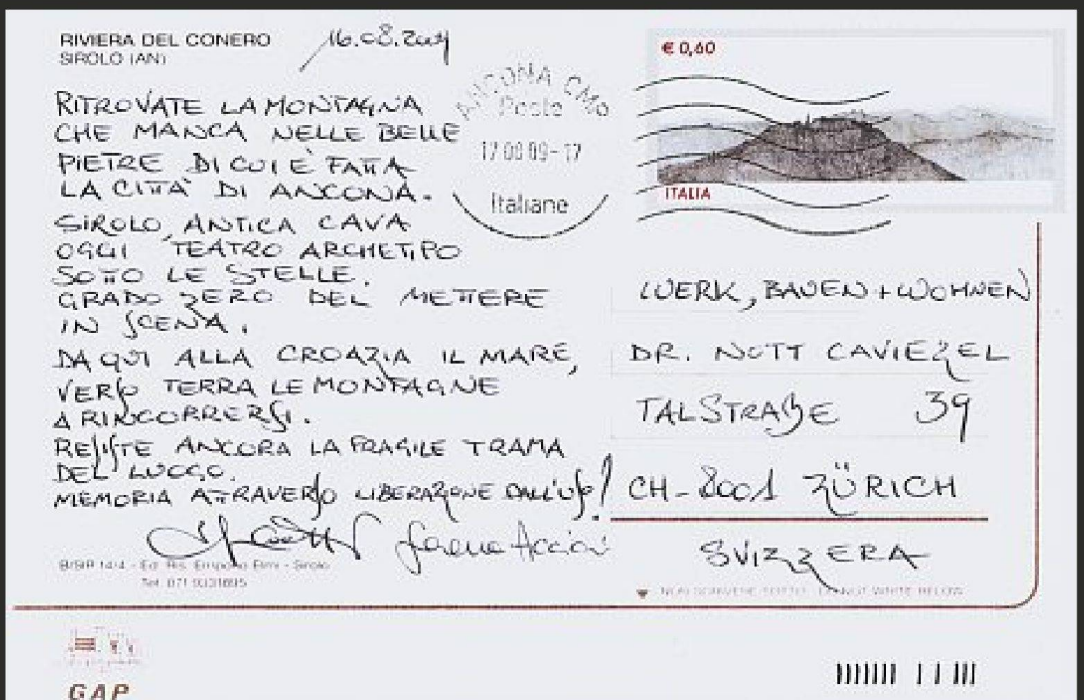 RIVIERA DEL CONERO
SIROLO (AN)
16.08.2009
€ 0,60
ANCONA CMP
Poste
17 08 09-17
Italiane
ITALIA
RITROVATE LA MONTAGNA
CHE MANCA NELLE BELLE
PIETRE DI CUI È FATTA
LA CITTÀ DI ANCONA.
SIROLO, ANTICA CAVA
OGGI TEATRO ARCHETIPO
SOTTO LE STELLE.
GRADO ZERO DEL METTERE
IN SCENA.
DA QUI ALLA CROAZIA IL MARE,
VERSO TERRA LE MONTAGNE
A RINCORRERSI.
RESISTE ANCORA LA FRAGILE TRAMA
DEL LUOGO.
MEMORIA ATTRAVERSO LIBERAZIONE DALL'USO!
WERK, BAUEN + WOHNEN
DR. NOTT CAVIEZEL
TALSTRAßE 39
CH-8001 ZÜRICH
SVIZZERA
- Sirolo
Tel. 071 9331695
NON SCRIVERE SOTTO - DO NOT WRITE BELOW
GAP